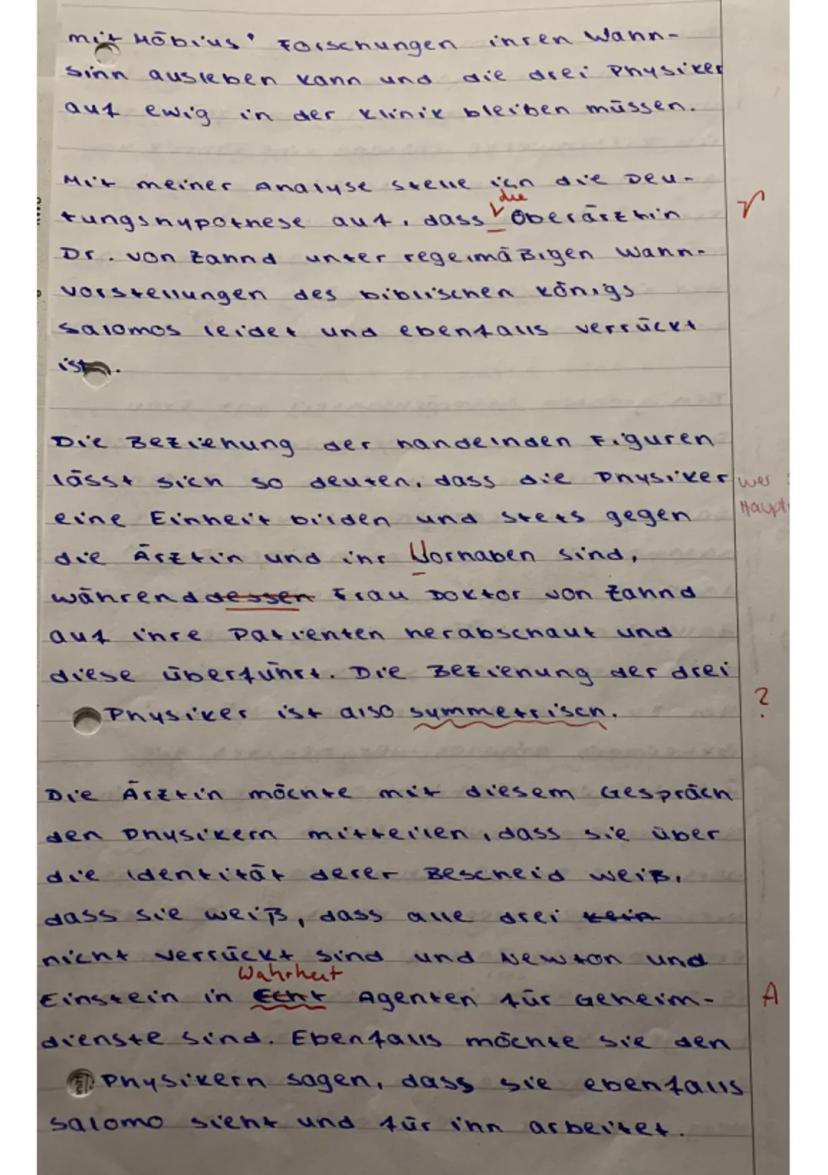 mit Möbius' Forschungen ihren Wahn-
sinn ausleben kann und die drei Physiker
auf ewig in der Klinik bleiben müssen.
Mit meiner Analyse stelle ich die Deu-
die
tungshypothese auf, dass V Oberärztin
r
Dr. von Zahnd unter regelmäßigen Wahn-
vorstellungen des biblischen Königs
Salomos leidet und ebenfalls verrückt
ist.
Die Beziehung der handelnden Figuren
lässt sich so deuten, dass die Physiker
wer
eine Einheit bilden und stets gegen
Haupt
die Ärztin und ihr Vorhaben sind,
währenddessen Frau Doktor von Zahnd
auf ihre Patienten herabschaut und
diese überführt. Die Beziehung der drei
Physiker ist also symmetrisch.
?
Die Ärztin möchte mit diesem Gespräch
den Physikern mitteilen, dass sie über
die Identität derer Bescheid weiß,
dass sie weiß, dass alle drei kein
nicht verrückt sind und Newton und
Wahrheit
Einstein in Echt Agenten für Geheim-
A
dienste sind. Ebenfalls möchte sie den
Physikern sagen, dass sie ebenfalls
Salomo sieht und für ihn arbeitet.